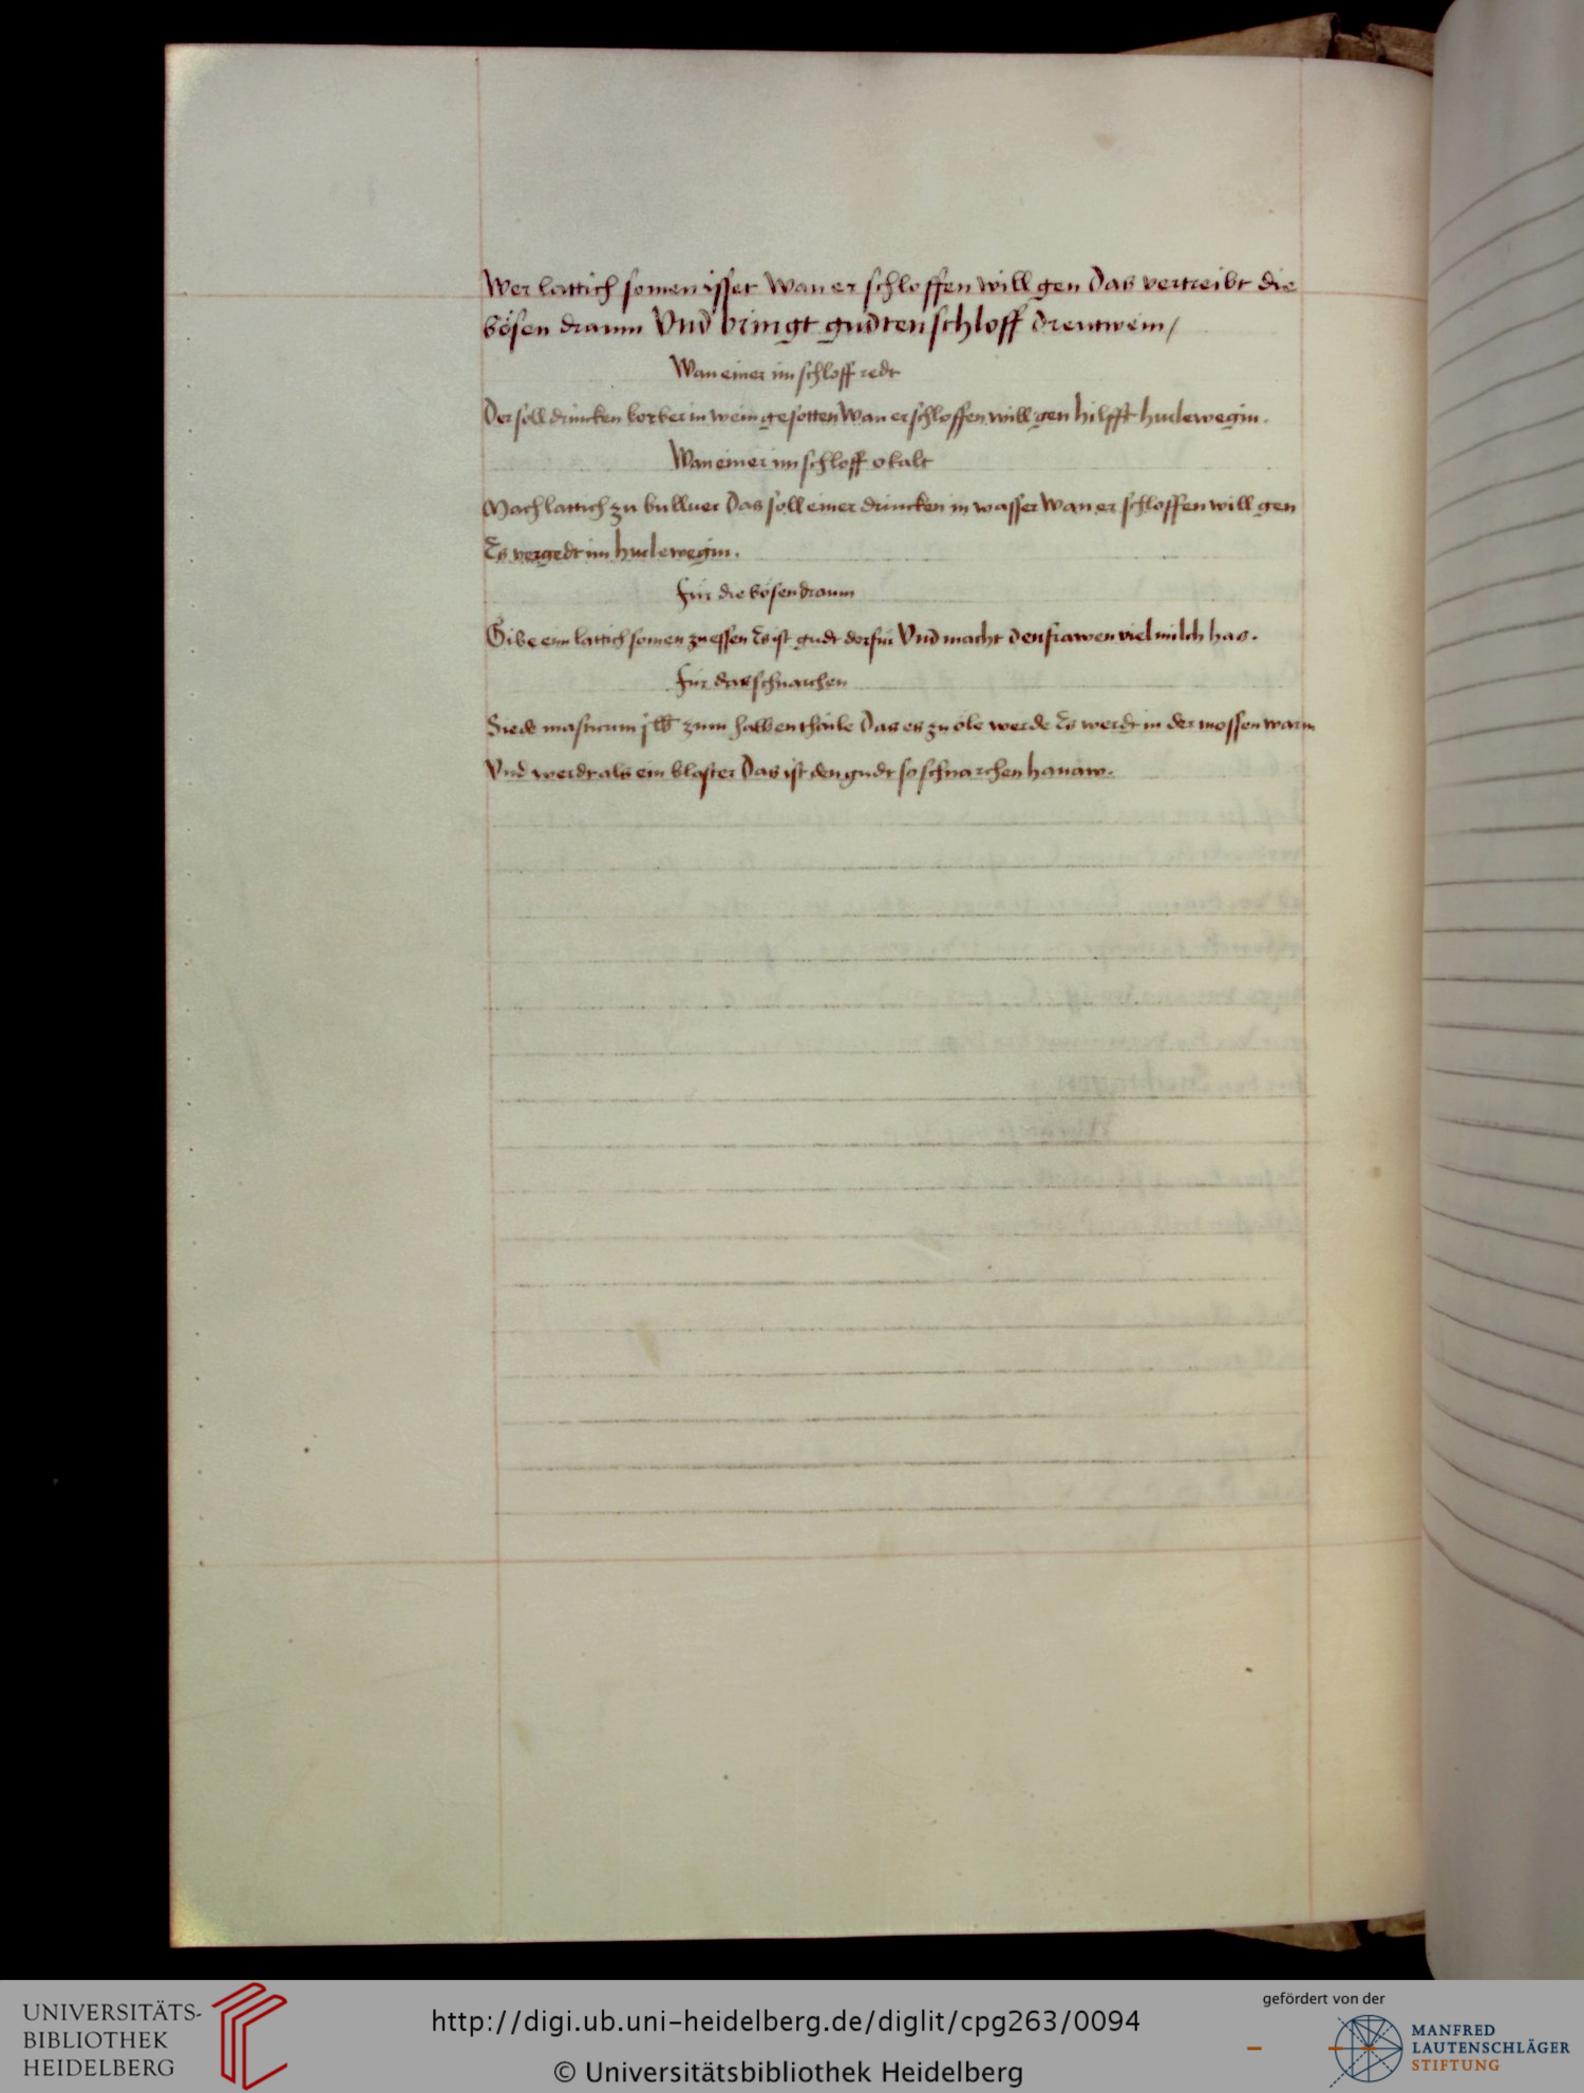 Wer lattich somen isset Wan er schloffen will gen Das vertreibt die
bösen draum Vnd bringt gudten schloff drentwein/
Wan einer im schloff redt
Der soll drincken lorber in wein gesotten Wan er schloffen will gen hilfft hudewegin.
Wan einer im schloff
Mach lattich zu bulluer Das soll einer drincken in wasser Wan er schloffen will gen
Es vergedt im hudewegin.
für die bösen draum
Gibe eim lattich somen zu essen Es ist gudt dorfur Vnd macht den frawen viel milch has.
für das schnarchen
Siede masticum j lb zum halben theile Das es zu ole werde Es werdt in der mossen warm
Vnd werdt als ein blaster Das ist den gudt so schnarchen hanaw.
UNIVERSITÄTS-
BIBLIOTHEK
HEIDELBERG
http://digi.ub.uni-heidelberg.de/diglit/cpg263/0094
© Universitätsbibliothek Heidelberg
gefördert von der
MANFRED
LAUTENSCHLÄGER
STIFTUNG